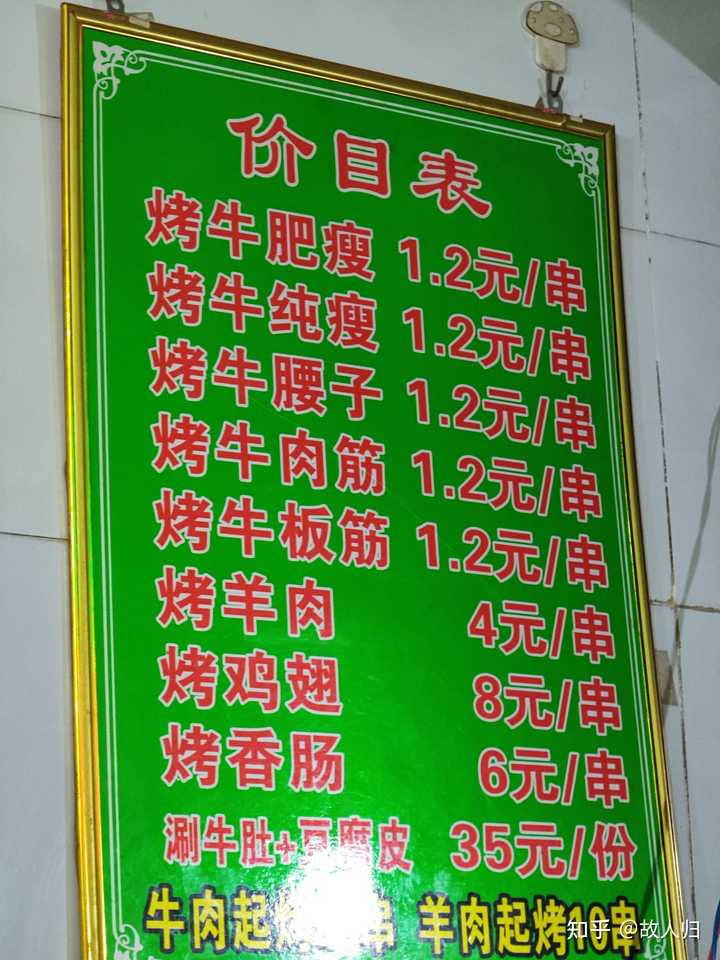 价目表
烤牛肥瘦 1.2元/串
烤牛纯瘦 1.2元/串
烤牛腰子 1.2元/串
烤牛肉筋 1.2元/串
烤牛板筋 1.2元/串
烤羊肉 4元/串
烤鸡翅 8元/串
烤香肠 6元/串
涮牛肚+豆腐皮 35元/份
牛肉起烤 串 羊肉起烤10串
知乎 @故人归